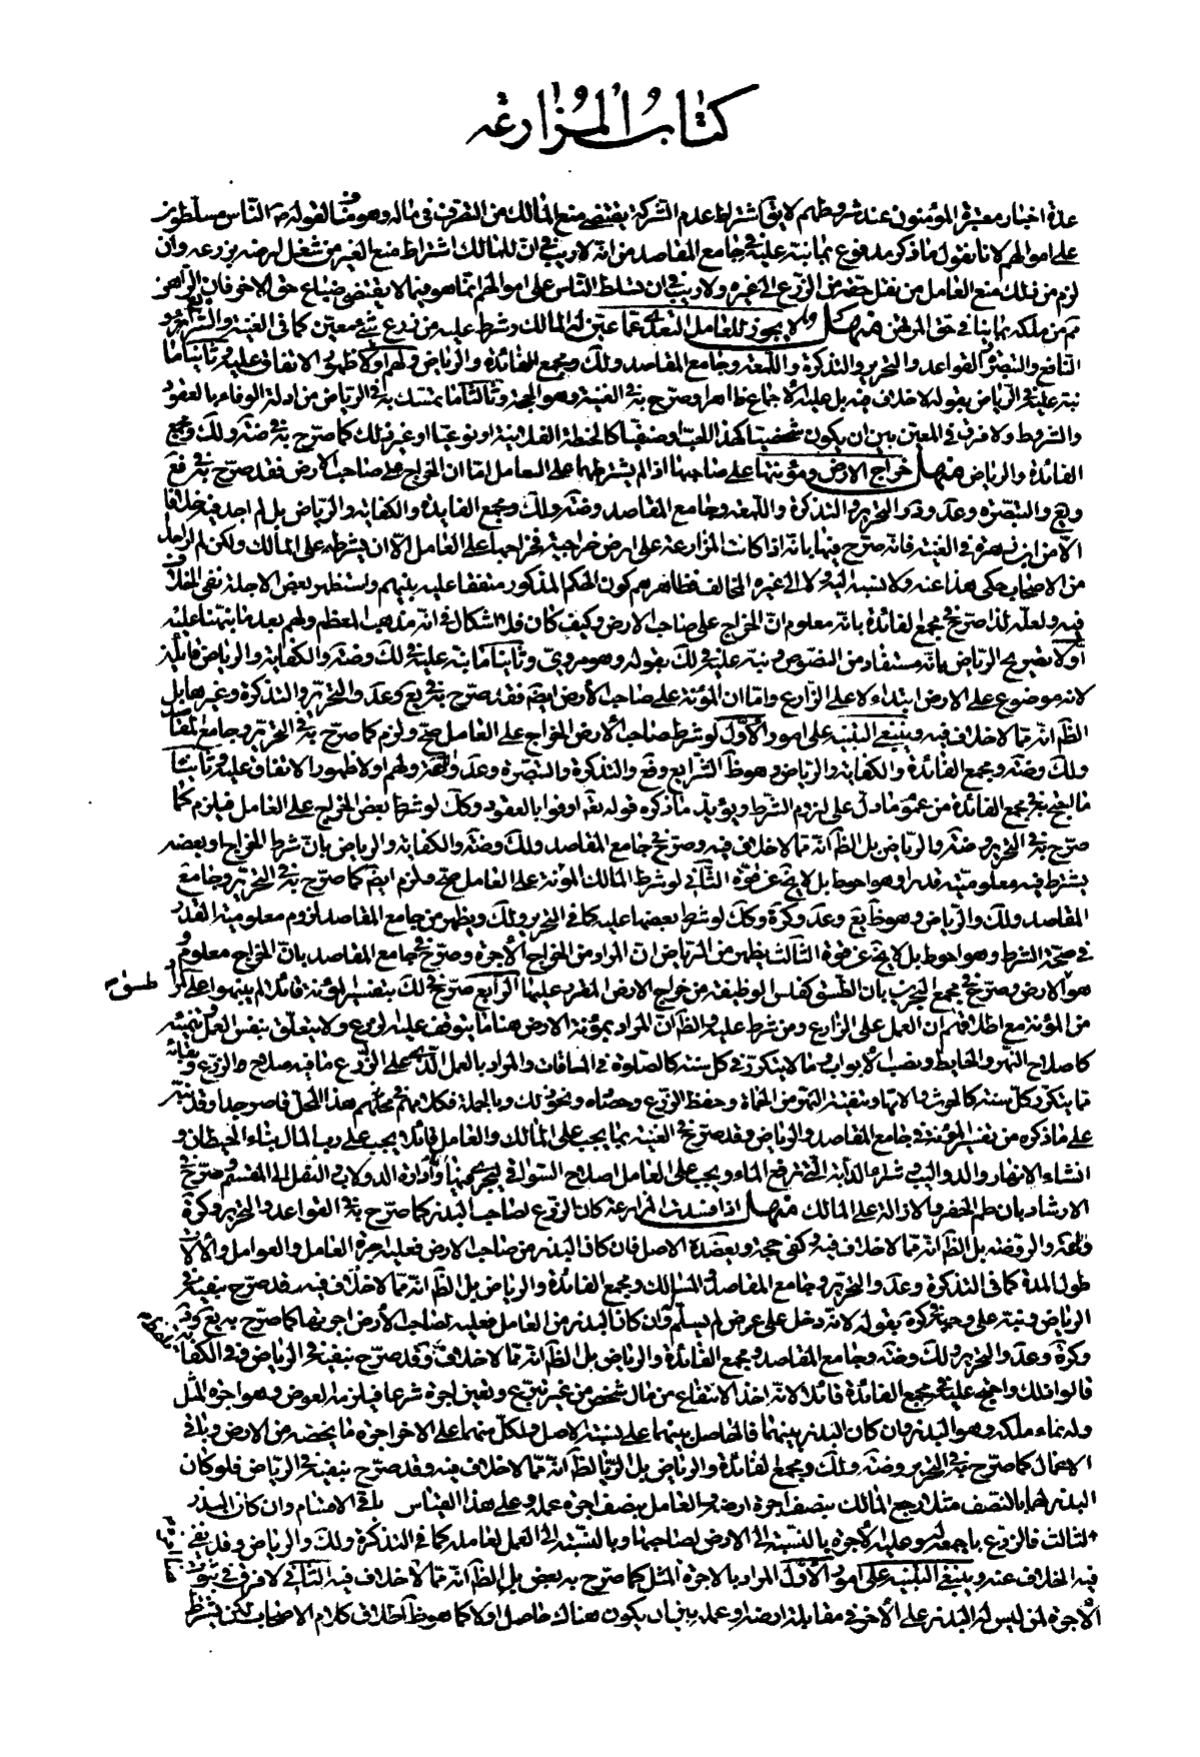 كتاب المزارعة
عدة اخبار معتبرة المؤمنون عند شروطهم لا يق اشتراط عدم الشركة يقتضى منع المالك من التصرف فى ماله وهو مناف لقوله ص الناس مسلطون
على اموالهم لانا نقول ما ذكر مدفوع بما نبه عليه فى جامع المقاصد من انه لا ريب فى ان للمالك اشتراط منع الغير من شغل ارضه بزرعه وان
لزم من ذلك منع العامل من نقل حصته من الزرع الى غيره ولا ريب فى ان تسلط الناس على اموالهم انما هو فيما لا يقتضى ضياع حق الاخر فان الراهن
من ملكه بما ينافى حق المرتهن منها لا يجوز للعامل التعدى عما عين له المالك وشرط عليه من زرع شئ معين كما فى الغنية والشرايع و
النافع والتبصرة والقواعد والتحرير والتذكرة واللمعه وجامع المقاصد ولك ومجمع الفائدة والرياض ولهم اولا ظهور الاتفاق عليه وثانيا ما
نبه عليه فى الرياض بقوله لا خلاف فيه بل عليه الاجماع ظاهرا وصرح به فى الغنية وهو الحجة وثالثا ما تمسك به فى الرياض من ادلة الوفاء بالعقود
والشروط ولا فرق فى المعين بين ان يكون شخصيا كهذا الحب او صنفيا كالحنطة الفلانية او نوعيا او غير ذلك كما صرح به فى ضه ولك ومجمع
الفائدة والرياض منها خراج الارض ومؤنتها على صاحبها اذا لم يشترطها على العامل اما ان الخراج على صاحب الارض فقد صرح به فى فع
ويع والتبصرة وعد و والتحرير والتذكرة واللمعه وجامع المقاصد وضه ولك ومجمع الفايدة والكفاية والرياض بل لم اجد فيه خلافا
الا من ابن زهرة فى الغنية فانه صرح فيها بانه اذا كانت المزارعة على ارض خراجية فخراجها على العامل الا ان يشرطه على المالك ولكن لم ار احدا
من الاصحاب حكى هذا عنه ولا نسبه اليه ولا الى غيره المخالف فظاهرهم كون الحكم المذكور متفقا عليه بينهم واستظهر بعض الاجلة نفى الخلاف
فيه ولعله لذا صرح فى مجمع الفائدة بانه معلوم ان الخراج على صاحب الارض وكيف كان فلا اشكال فى انه مذهب المعظم ولهم بعد ما نبهنا عليه
اولا تصريح الرياض بانه مستفاد من النصوص ونبه عليه فى لك بقوله وهو مروى وثانيا ما نبه عليه فى لك وضه والكفاية والرياض قائلين
لانه موضوع على الارض ابتداء لا على الزارع واما ان المؤنة على صاحب الارض ايضم فقد صرح به فى يع وعد والتحرير والتذكرة وغيرها بل
الظم انه مما لا خلاف فيه وينبغى التنبيه على امور الاول لو شرط صاحب الارض الخراج على العامل صح ولزم كما صرح به فى التحرير وجامع المقاصد
ولك وضه ومجمع الفائدة والكفاية والرياض وهو ظ الشرايع وفع والتذكرة والتبصرة وعد واللمعه ولهم اولا ظهور الاتفاق عليه وثانيا
ما اليه فى مجمع الفائدة من عموم ما دل على لزوم الشرط ويؤيد ما ذكره قوله تعم اوفوا بالعقود وكك لو شرط بعض الخراج على العامل فيلزم كما
صرح به فى التحرير وضه والرياض بل الظم انه مما لا خلاف فيه وصرح فى جامع المقاصد ولك وضه والكفاية والرياض بان شرط الخراج او بعضه
يشترط فيه معلوميته قدرا وهو احوط بل لا يخ عن قوة الثانى لو شرط المالك المؤنة على العامل صح ولزم ايضم كما صرح به فى التحرير وجامع
المقاصد ولك والرياض وهو ظ يع وعد وكرة وكك لو شرط بعضها عليه كما فى التحرير ولك ويظهر من جامع المقاصد لزوم معلومية القدر
فى صحة الشرط وهو احوط بل لا يخ عن قوة الثالث يظهر من الرياض ان المراد من الخراج الاجرة وصرح فى جامع المقاصد بان الخراج معلوم و
هو الارض وصرح فى مجمع البحرين بان الطسق كفلس الوظيفة من خراج الارض المقرر عليها الرابع صرح فى لك بتفسير المؤنة قائلا لم يبينوا على المراد طسق
من المؤنة مع اطلاقهم ان العمل على الزارع ومن شرط عليه والظ ان المراد بمؤنة الارض هنا ما يتوقف عليه الزرع ولا يتعلق بنفس العمل وتنميته
كاصلاح النهر والحايط ونصب الابواب وما لا يتكرر فى كل سنة كالصلوة فى المساقات والمراد بالعمل الذى على الزرع ما فيه صلاح الزرع وبقائه
مما يتكرر كل سنة كالحرث والانهار وتنقية النهر من الحماة وحفظ الزرع وحصاده ونحو ذلك وبالجملة فكلامهم فى هذا المحل قاصر جدا وقد نبه
على ما ذكره من تفسير المؤنة فى جامع المقاصد والرياض وقد صرح فى الغنية بما يجب على المالك والعامل قائلا يجب على رب المال بناء الحيطان و
انشاء الانهار والدواليب وشراء الدابة التى ترفع الماء ويجب على العامل اصلاح السواقى وادارة الدولاب والنقل الى المقسم وصرح فى
الارشاد بان طم الحفر بالازالة على المالك منها اذا فسدت المزارعة كان الزرع لصاحب البذر كما صرح به فى القواعد والتحرير وكرة
والروضه بل الظم انه مما لا خلاف فيه وكفى حجة ويعضده الاصل فان كان البذر من صاحب الارض فعليه اجرة العامل والعوامل والآلات
طول المدة كما فى التذكرة وعد والتحرير وجامع المقاصد والمسالك ومجمع الفائدة والرياض بل الظم انه مما لا خلاف فيه وقد صرح بنفيه فى
الرياض ونبه على وجهه فى كرة بقوله لانه دخل على عوض لم يسلم وان كان البذر من العامل فعليه لصاحب الارض اجرتها كما صرح به يع وفع
وكرة وعد والتحرير ولك وضه وجامع المقاصد ومجمع الفائدة والرياض بل الظم انه مما لا خلاف وقد صرح بنفيه فى الرياض وفى الكفاية
قالوا ذلك واحتج عليه فى مجمع الفائدة قائلا لانه اخذ الانتفاع من مال شخص من غير تبرع وتعين اجرة شرعا فيلزمه العوض وهو اجرة المثل
وله نماء ملكه وهو البذر وان كان البذر بينهما فالحاصل بينهما على نسبة الاصل ولكل منهما على الاخر اجرة ما يخصه من الارض وباقى
الاعمال كما صرح به فى التحرير وضه ولك ومجمع الفائدة والرياض بل الظم انه مما لا خلاف فيه وقد صرح بنفيه فى الرياض فلو كان
البذر لهما بالنصف مثلا رجع المالك بنصف اجرة ارضه والعامل بنصف اجرة عمله وعلى هذا القياس باقى الاقسام وان كان البذر
لثالث فالزرع باجمعه له وعليه الاجرة بالنسبة الى الارض لصاحبها وبالنسبة الى العمل لعامله كما فى التذكرة ولك والرياض وقد نفى
فيه الخلاف عنه وينبغى التنبيه على امور الاول المراد بالاجرة المثل كما صرح به بعض بل الظم انه مما لا خلاف فيه الثانى لا فرق فى ثبوت
الاجرة لمن ليس له البذر على الاخر فى مقابلة ارضه او عمله بين ان يكون هناك حاصل اولا كما هو ظ اطلاق كلام الاصحاب لكن